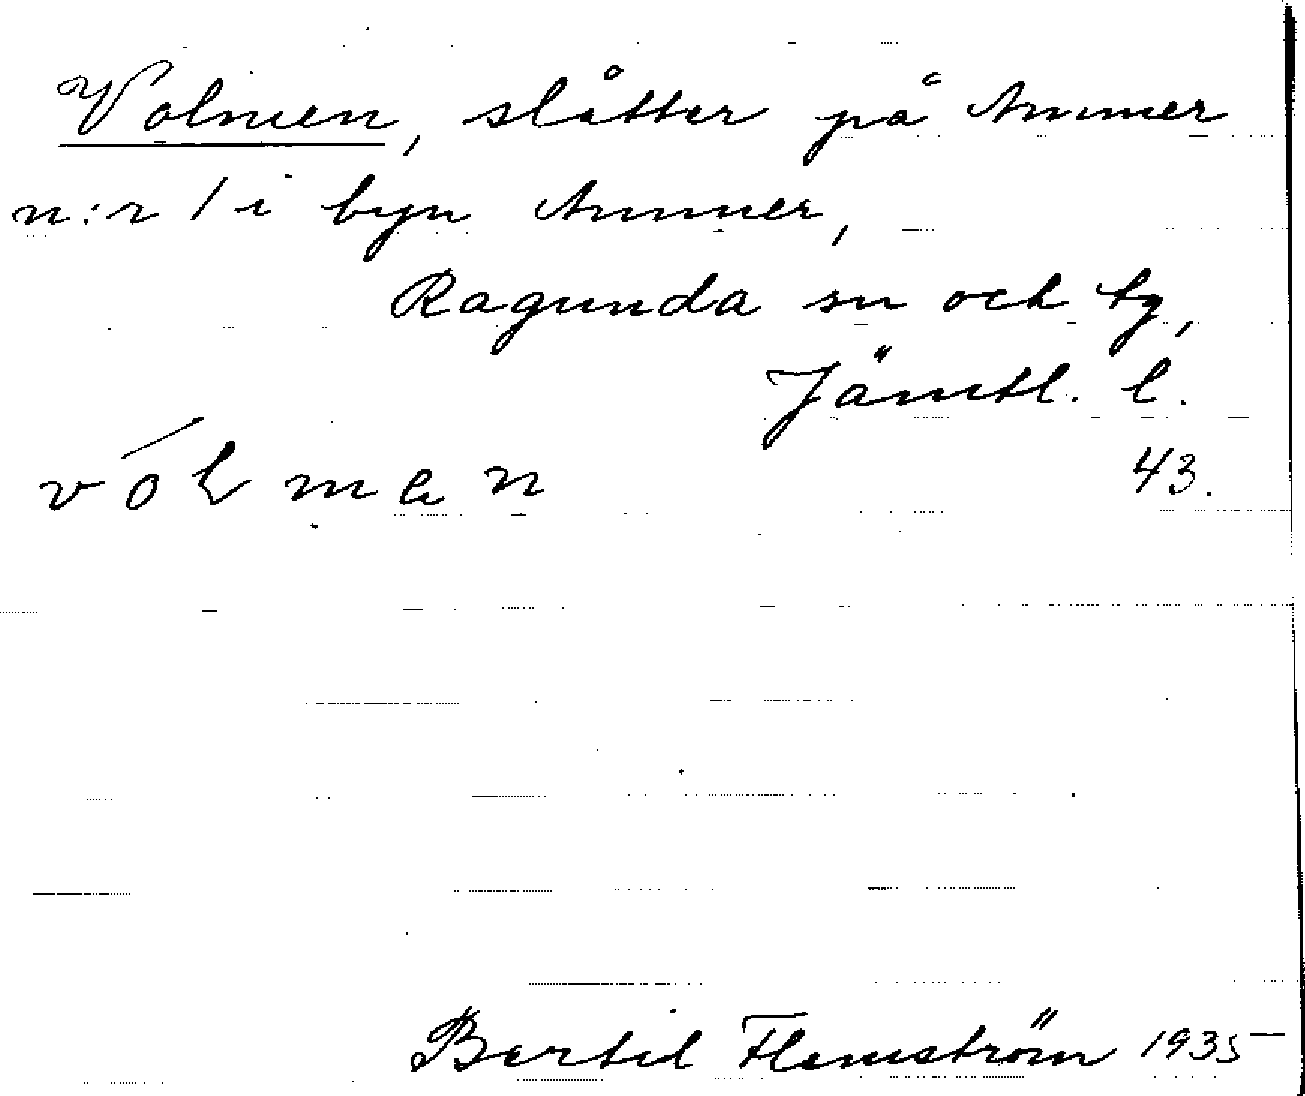 Volmen, slåtter på Ammer
n:r 1 i byn Ammer,
Ragunda sn och tg,
Jämtl. l.
43.
Bertil Flemström 1935